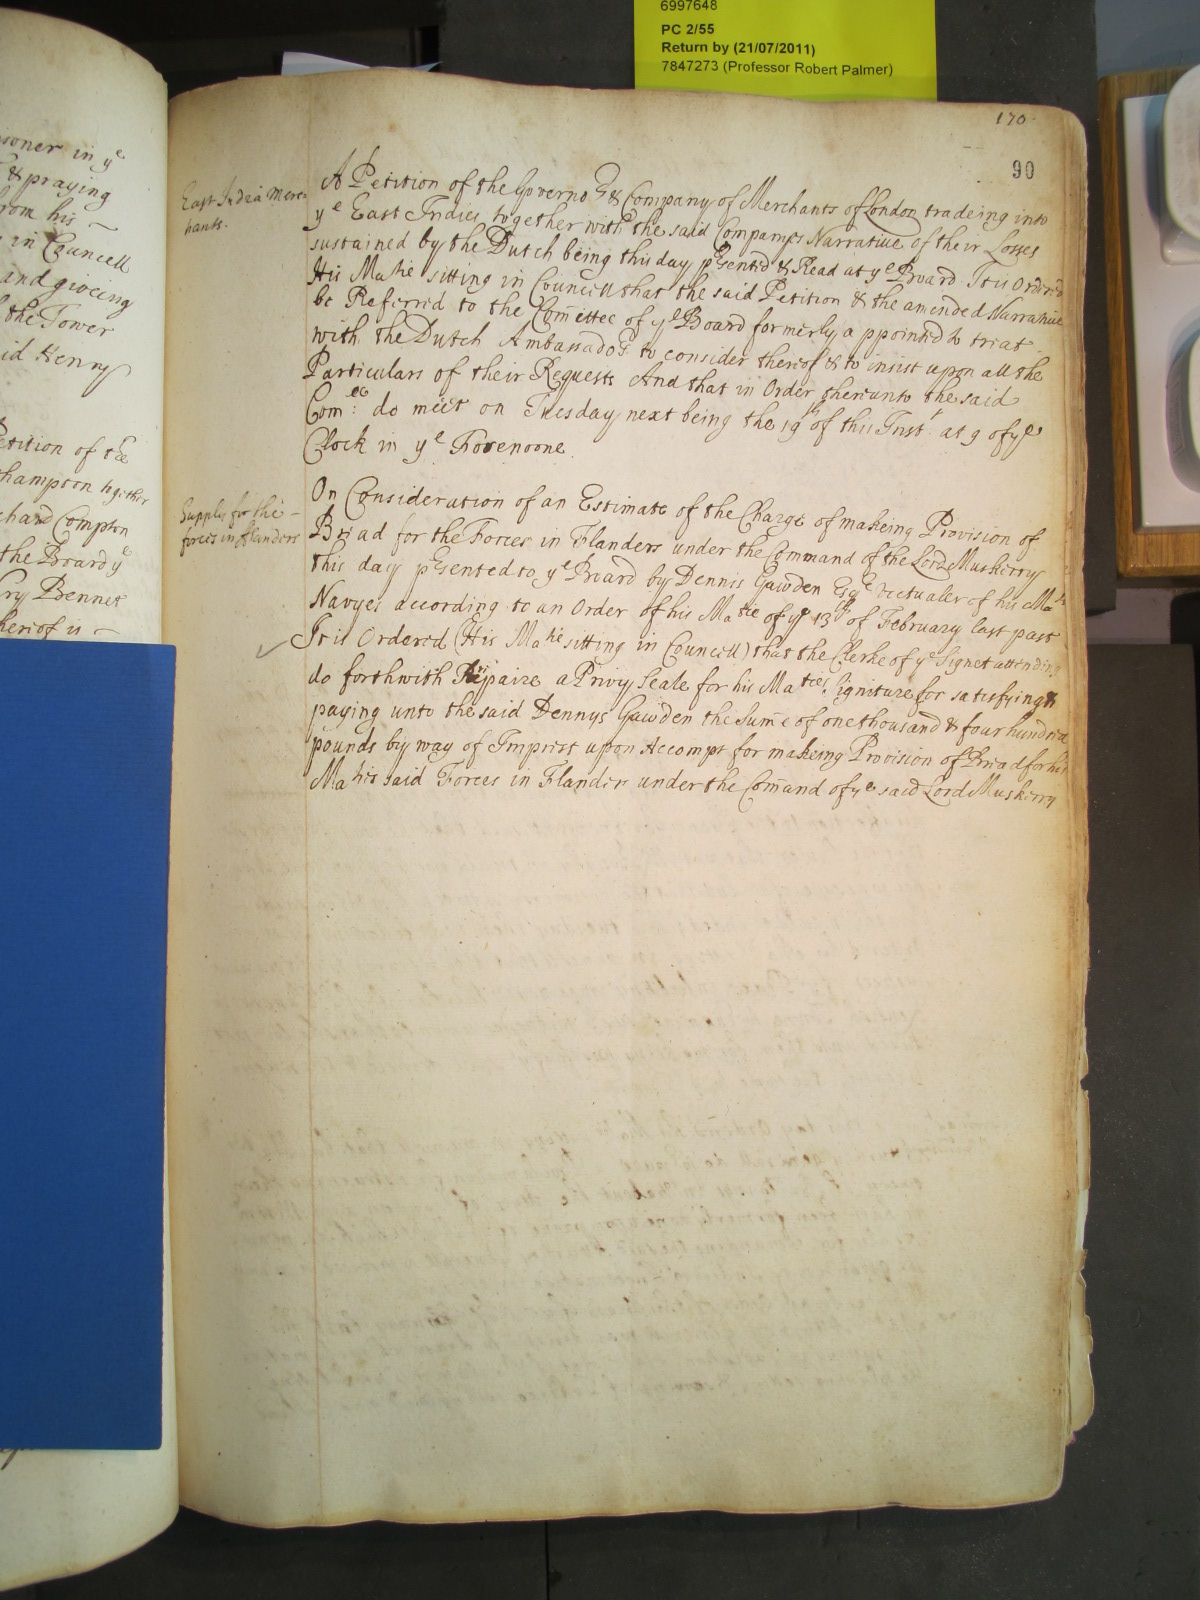 6997648
PC 2/55
Return by (21/07/2011)
7847273 (Professor Robert Palmer)
170
90
soner in yͤ
& praying
rom his
in Councell
and giveing
the Tower
id Henry
etition of the
hampton together
chard Compton
the Board yͤ
ry Bennet
hereof is
East India Merc
hants.
A Petition of the Governoʳ & Company of Merchants of London tradeing into
yͤ East Indies together with the said Companys Narrative of their Losses
sustained by the Dutch being this day pʳsented & Read at yͤ Board It is Ordered
His Maᵗⁱᵉ sitting in Councell that the said Petition & the amended Narrative
be Referred to the Com̃ittee of yͤ Board formerly appointed to treat
with the Dutch Ambassadoʳ to consider thereof & to insist upon all the
Particulars of their Requests And that in Order thereunto the said
Comᵉᵉ: do meet on Tuesday next being the 19ᵗʰ of this Instᵗ at 9 of yͤ
Clock in yͤ Forenoone.
Supply for the
forces in Flanders
On Consideration of an Estimate of the Charge of makeing Provision of
Bread for the Forces in Flanders under the Command of the Lord Muskerry
this day pʳsented to yͤ Board by Dennis Gawden Esqʳ victualer of his Maᵗˢ
Navyes according to an Order of his Maᵗⁱᵉ of yͤ 13ᵗʰ of February last past
It is Ordered (His Maᵗⁱᵉ sitting in Councell) that the Clerke of yͤ Signet attending
do forthwith Prepaire a Privy Seale for his Maᵗⁱᵉˢ Signiture for satisfying &
paying unto the said Dennys Gawden the Sum̃e of one thousand & four hundred
pounds by way of Imprest upon Accompt for makeing Provision of Bread for his
Maᵗⁱᵉˢ said Forces in Flanders under the Com̃and of yͤ said Lord Muskerry